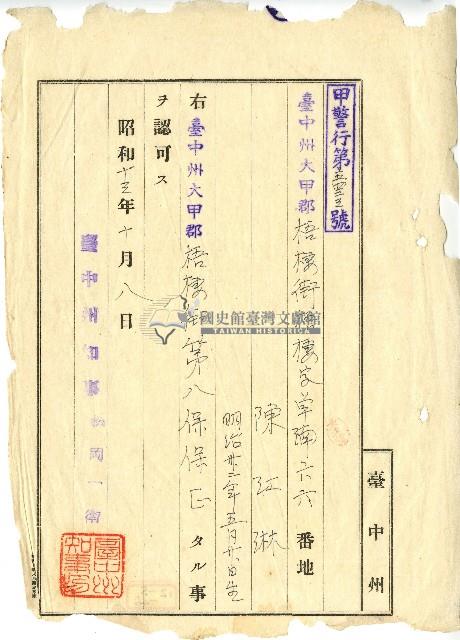 臺中州
甲警行第五四三號
臺中州大甲郡梧棲街梧棲字草湳六六番地
陳江淋
明治卅二年五月廿日生
右臺中州大甲郡梧棲街第八保保正タル事
ヲ認可ス
昭和十三年十月八日
臺中州知事松岡一衛
臺中州知事印
國史館臺灣文獻館
TAIWAN HISTORICA